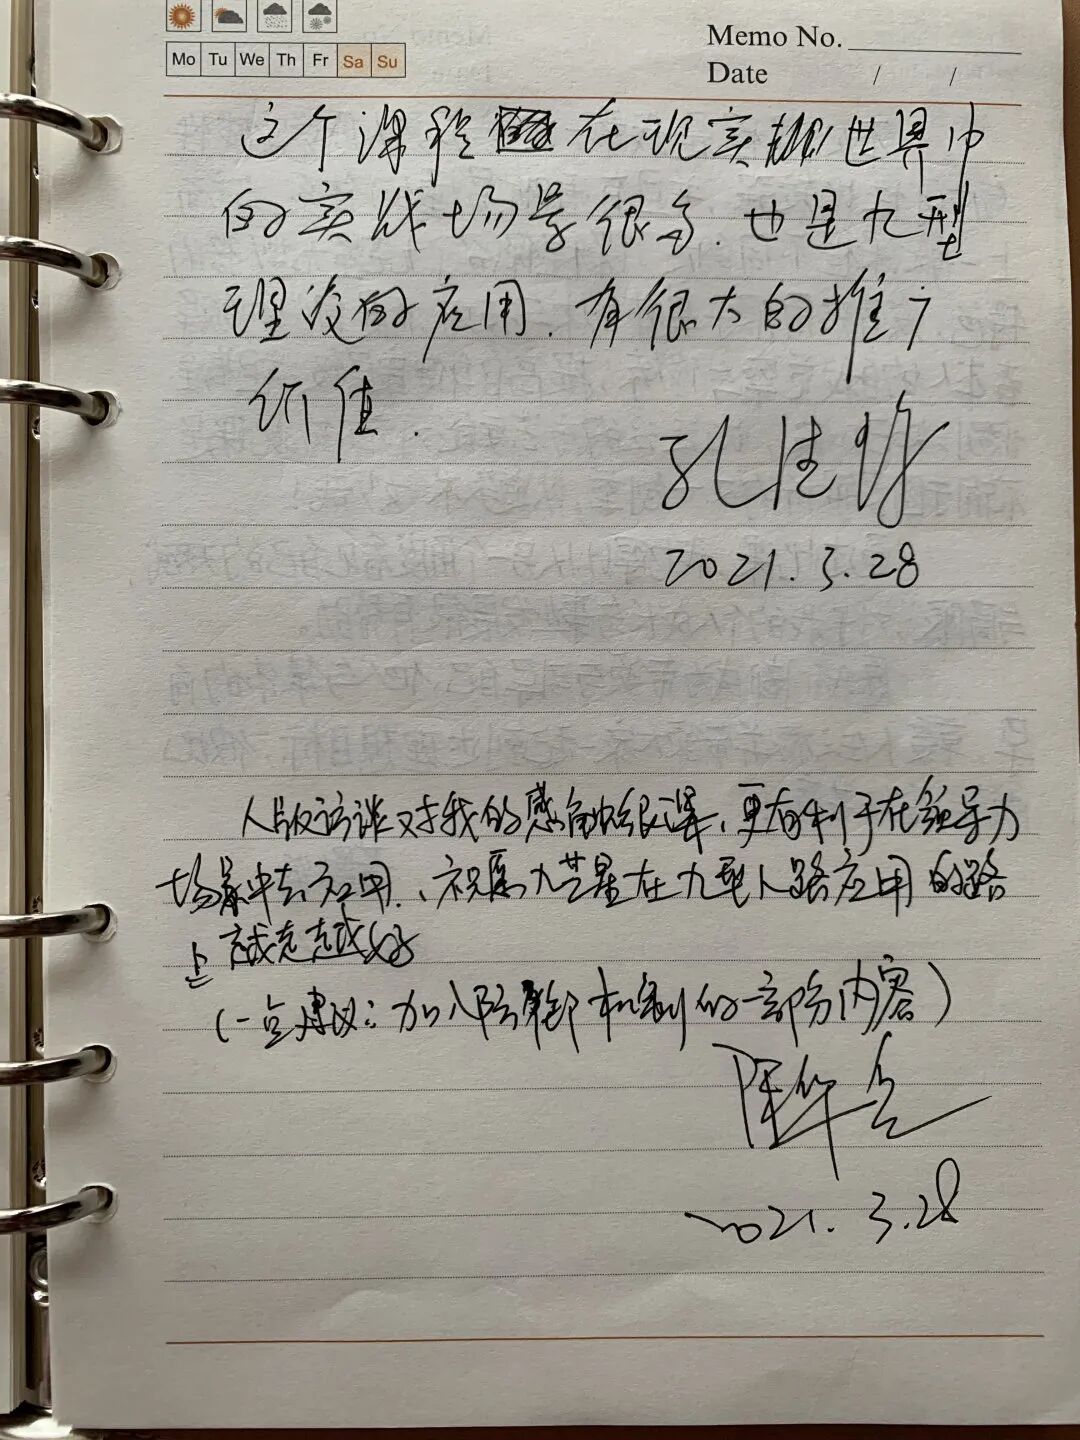 Mo Tu We Th Fr Sa Su
Memo No.
Date / /
这个课程在现实世界中
的实战场景很多.也是九型
理论的应用.有很大的推广
价值.
孔
2021.3.28
人际访谈对我的感触很深,更有利于在领导力
场景中去应用、祝愿九芒星在九型人路应用的路
上越走越好
(一点建议:加入防御机制的一部分内容)
陈华
2021.3.28